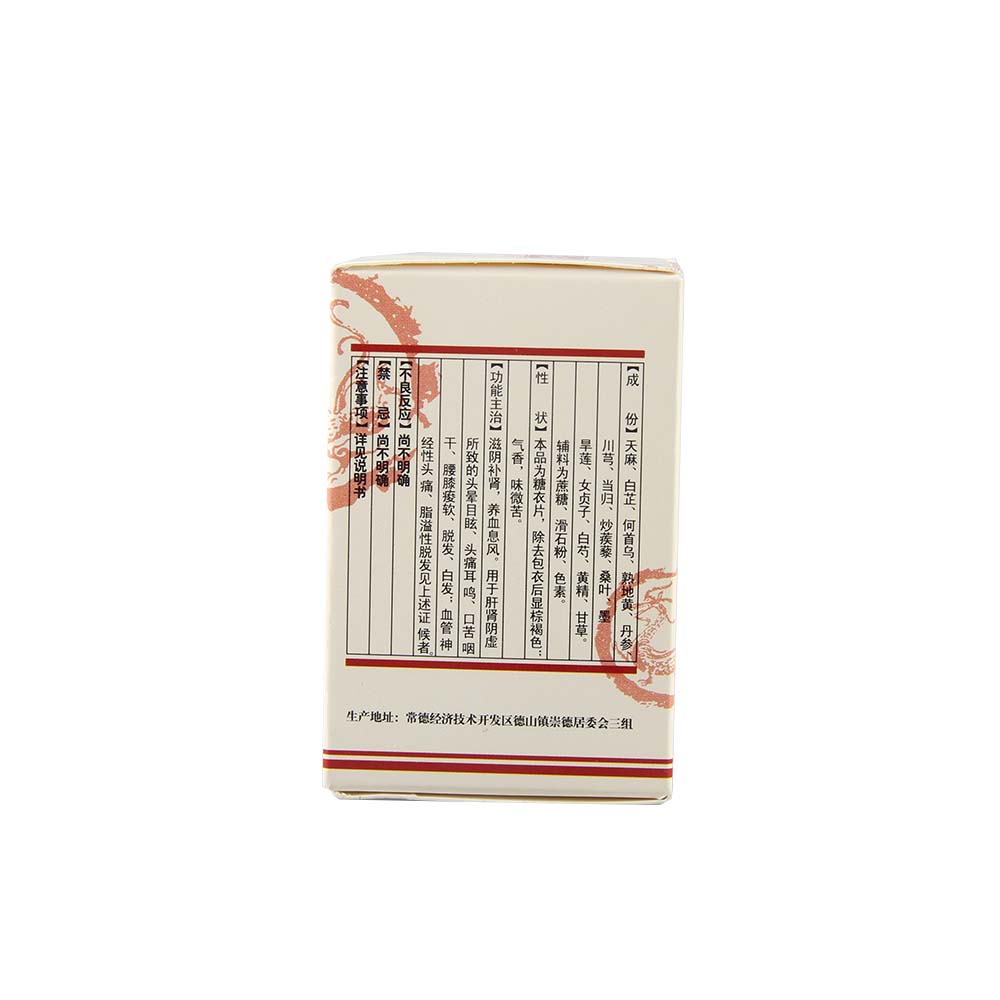 【成 份】天麻、白芷、何首乌、熟地黄、丹参、
川芎、当归、炒蒺藜、桑叶、墨
旱莲、女贞子、白芍、黄精、甘草。
辅料为蔗糖、滑石粉、色素。
【性 状】本品为糖衣片，除去包衣后显棕褐色；
气香，味微苦。
【功能主治】滋阴补肾，养血息风。用于肝肾阴虚
所致的头晕目眩、头痛耳 鸣、口苦 咽
干、腰膝痠软、脱发、白发；血管 神
经性头 痛、脂溢性脱发见上述证 候者。
【不良反应】尚不明确
【禁 忌】尚不明确
【注意事项】详见说明书
生产地址：常德经济技术开发区德山镇崇德居委会三组